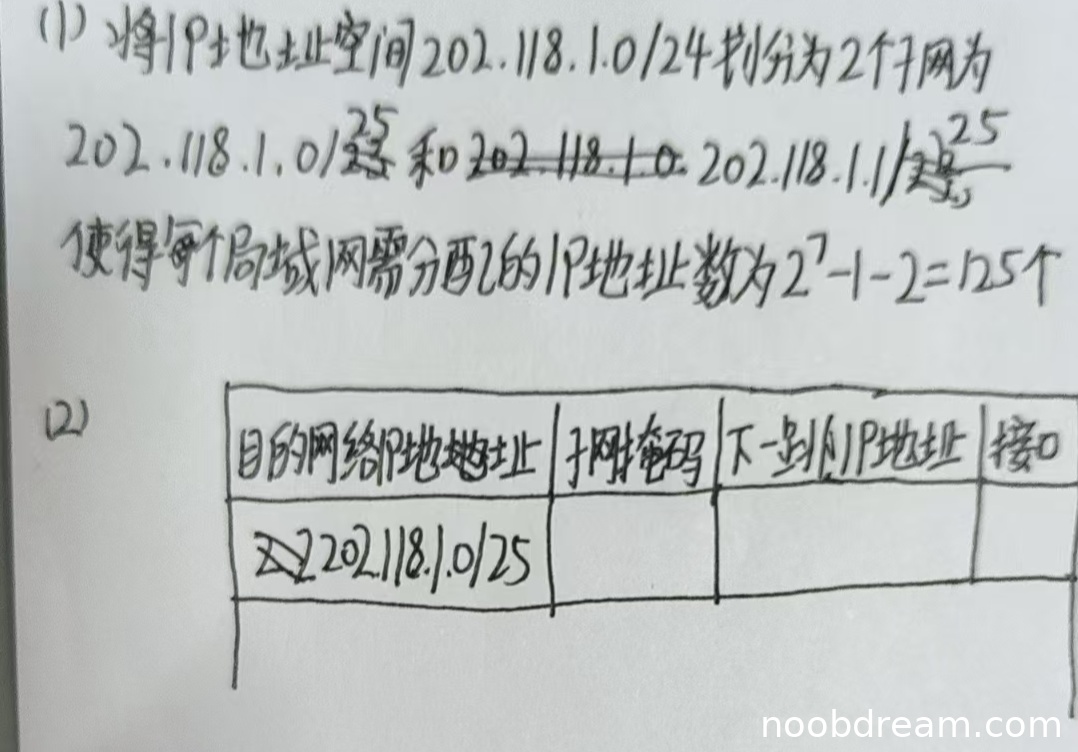 (1) 将IP地址空间202.118.1.0/24划分为2个子网为
202.118.1.0/25 和 202.118.1.0. 202.118.1.1/25
使得每个局域网需分配的IP地址数为2⁷-1-2=125个
(2)
目的网络IP地址 子网掩码 下一跳IP地址 接口
202.118.1.0/25
noobdream.com